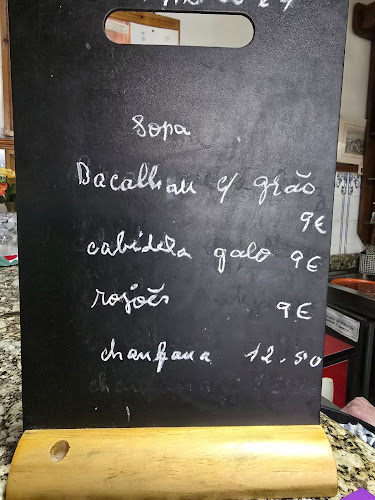 Sopa
Bacalhau c/ grão
9€
cabidela galo 9€
rojões 9€
chanfana 12.50